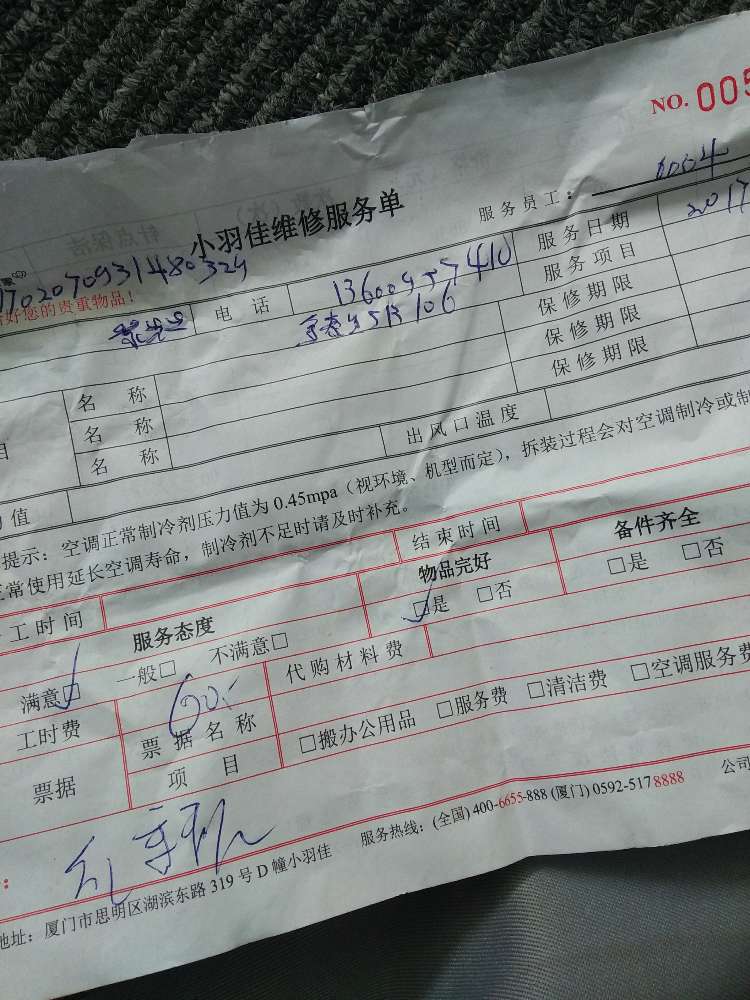 NO. 005
小羽佳维修服务单
服务员工： 0004
02070931480329
好您的贵重物品！
电 话 13600957410
服务日期 2017
服务项目
保修期限
保修期限
保修期限
名 称
名 称
名 称
出风口温度
值
提示：空调正常制冷剂压力值为 0.45mpa（视环境、机型而定），拆装过程会对空调制冷或制
常使用延长空调寿命，制冷剂不足时请及时补充。
工时间 结束时间
服务态度 物品完好 备件齐全
满意□ 一般□ 不满意□ □是 □否 □是 □否
工时费 60.- 代购材料费
票据 票据名称 □搬办公用品 □服务费 □清洁费 □空调服务费
项 目
服务热线：(全国) 400-6655-888 (厦门) 0592-5178888 公司
地址：厦门市思明区湖滨东路 319 号 D 幢小羽佳